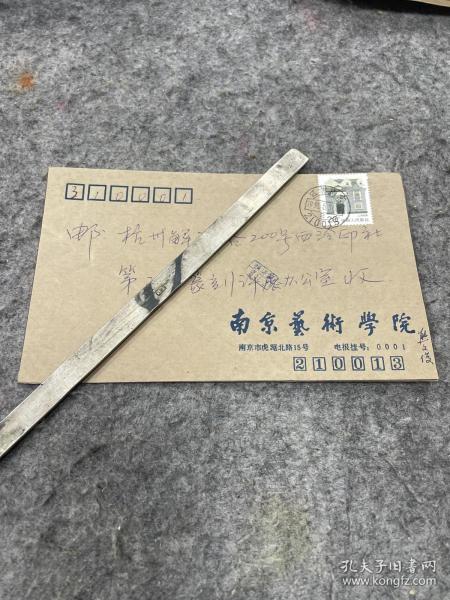 310001
邮 杭州解 路200号西泠印社
第 篆刻 评展办公室 收
南京藝術學院
南京市虎踞北路15号 电报挂号:0001
210013
孔夫子旧书网
www.kongfz.com